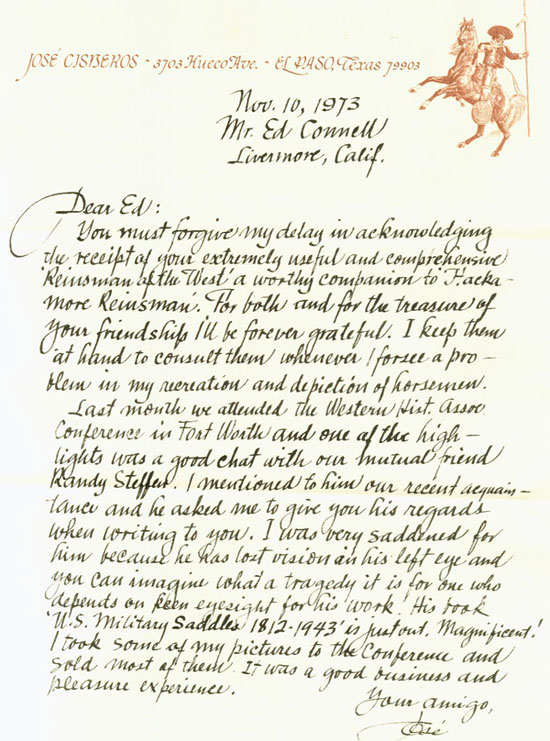 JOSÉ CISNEROS - 3703 Hueco Ave. - EL PASO, Texas 79903
Nov. 10, 1973
Mr. Ed Connell
Livermore, Calif.
Dear Ed:
You must forgive my delay in acknowledging
the receipt of your extremely useful and comprehensive
'Reinsman of the West' a worthy companion to 'Hacka-
more Reinsman'. For both and for the treasure of
your friendship I'll be forever grateful. I keep them
at hand to consult them whenever I forsee a pro-
blem in my recreation and depiction of horsemen.
Last month we attended the Western Hist. Assoc.
Conference in Fort Worth and one of the high-
lights was a good chat with our mutual friend
Randy Steffen. I mentioned to him our recent acquain-
tance and he asked me to give you his regards
when writing to you. I was very saddened for
him because he has lost vision in his left eye and
you can imagine what a tragedy it is for one who
depends on keen eyesight for his work! His book
'U.S. Military Saddles 1812-1943' is just out. Magnificent!
I took some of my pictures to the Conference and
sold most of them. It was a good business and
pleasure experience.
Your amigo,
José